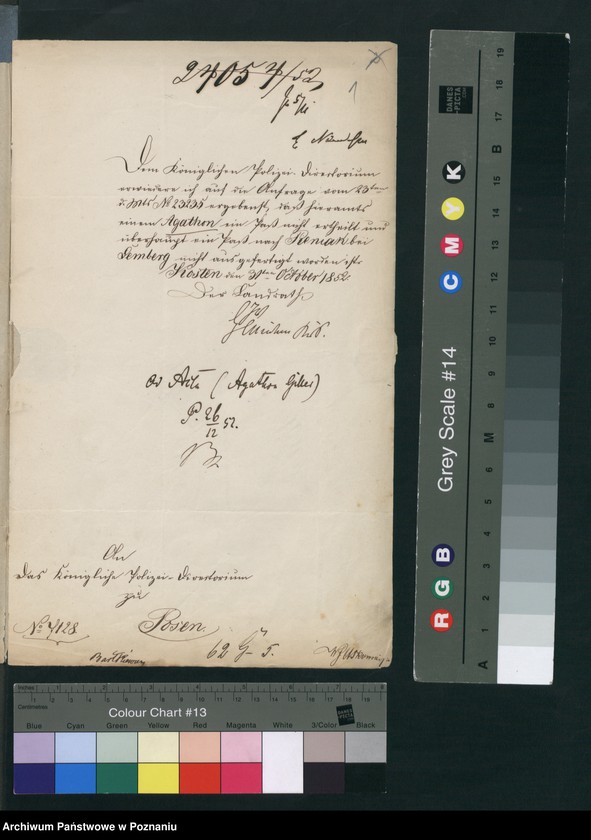 24054/52
Dem Königlichen Polizei-Directorium
erwiedere ich auf die Anfrage vom 23ten
d. Mts No 23235 ergebenst, daß hieramts
einem Agathon ein Paß nicht ertheilt und
überhaupt ein Paß nach Pieniak bei
Lemberg nicht ausgefertigt worden ist.
Kosten den 31ten October 1852.
Der Landrath
ad Acta (Agathon Giller)
P. 26/12 52.
An
das Königliche Polizei-Directorium
zu
Posen.
No 7128
Inches
Centimetres
Colour Chart #13
DANES PICTA .COM
Blue Cyan Green Yellow Red Magenta White 3/Color Black
Grey Scale #14
DANES PICTA .COM
R G B C M Y K
A 1 2 3 4 5 6 M 8 9 10 11 12 13 14 15 B 17 18 19
Archiwum Państwowe w Poznaniu